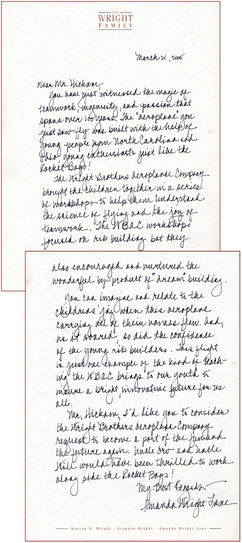 THE
WRIGHT
FAMILY
March 21, 2005
Dear Mr. Hickam,
You have just witnessed the magic of
teamwork, ingenuity, and passion that
spans over 100 years. The "aeroplane" you
just saw fly was built with the help of
young people from North Carolina and
Ohio, young enthusiasts just like the
Rocket Boys!
The Wright Brothers Aeroplane Company
brought the children together in a series
of workshops to help them understand
the science of flying and the joy of
teamwork. The WBAC workshops
focused on rib building but they
also encouraged and nurtured the
wonderful by-product of "dream" building.
You can imagine and relate to the
childrens' joy when this aeroplane
carrying all of their names flew. And,
as it soared, so did the confidence
of the young rib builders. This flight
is just one example of the kind of "teach-
ing" the WBAC brings to our youth to
insure a bright innovative future for us
all.
Mr. Hickam, I'd like you to consider
the Wright Brothers Aeroplane Company
request to become a part of the fun and
the future again. Uncle Orv and Uncle
Will would have been thrilled to work
along side the Rocket Boys!
My Best Regards,
Amanda Wright Lane
Marion B. Wright Stephen Wright Amanda Wright Lane